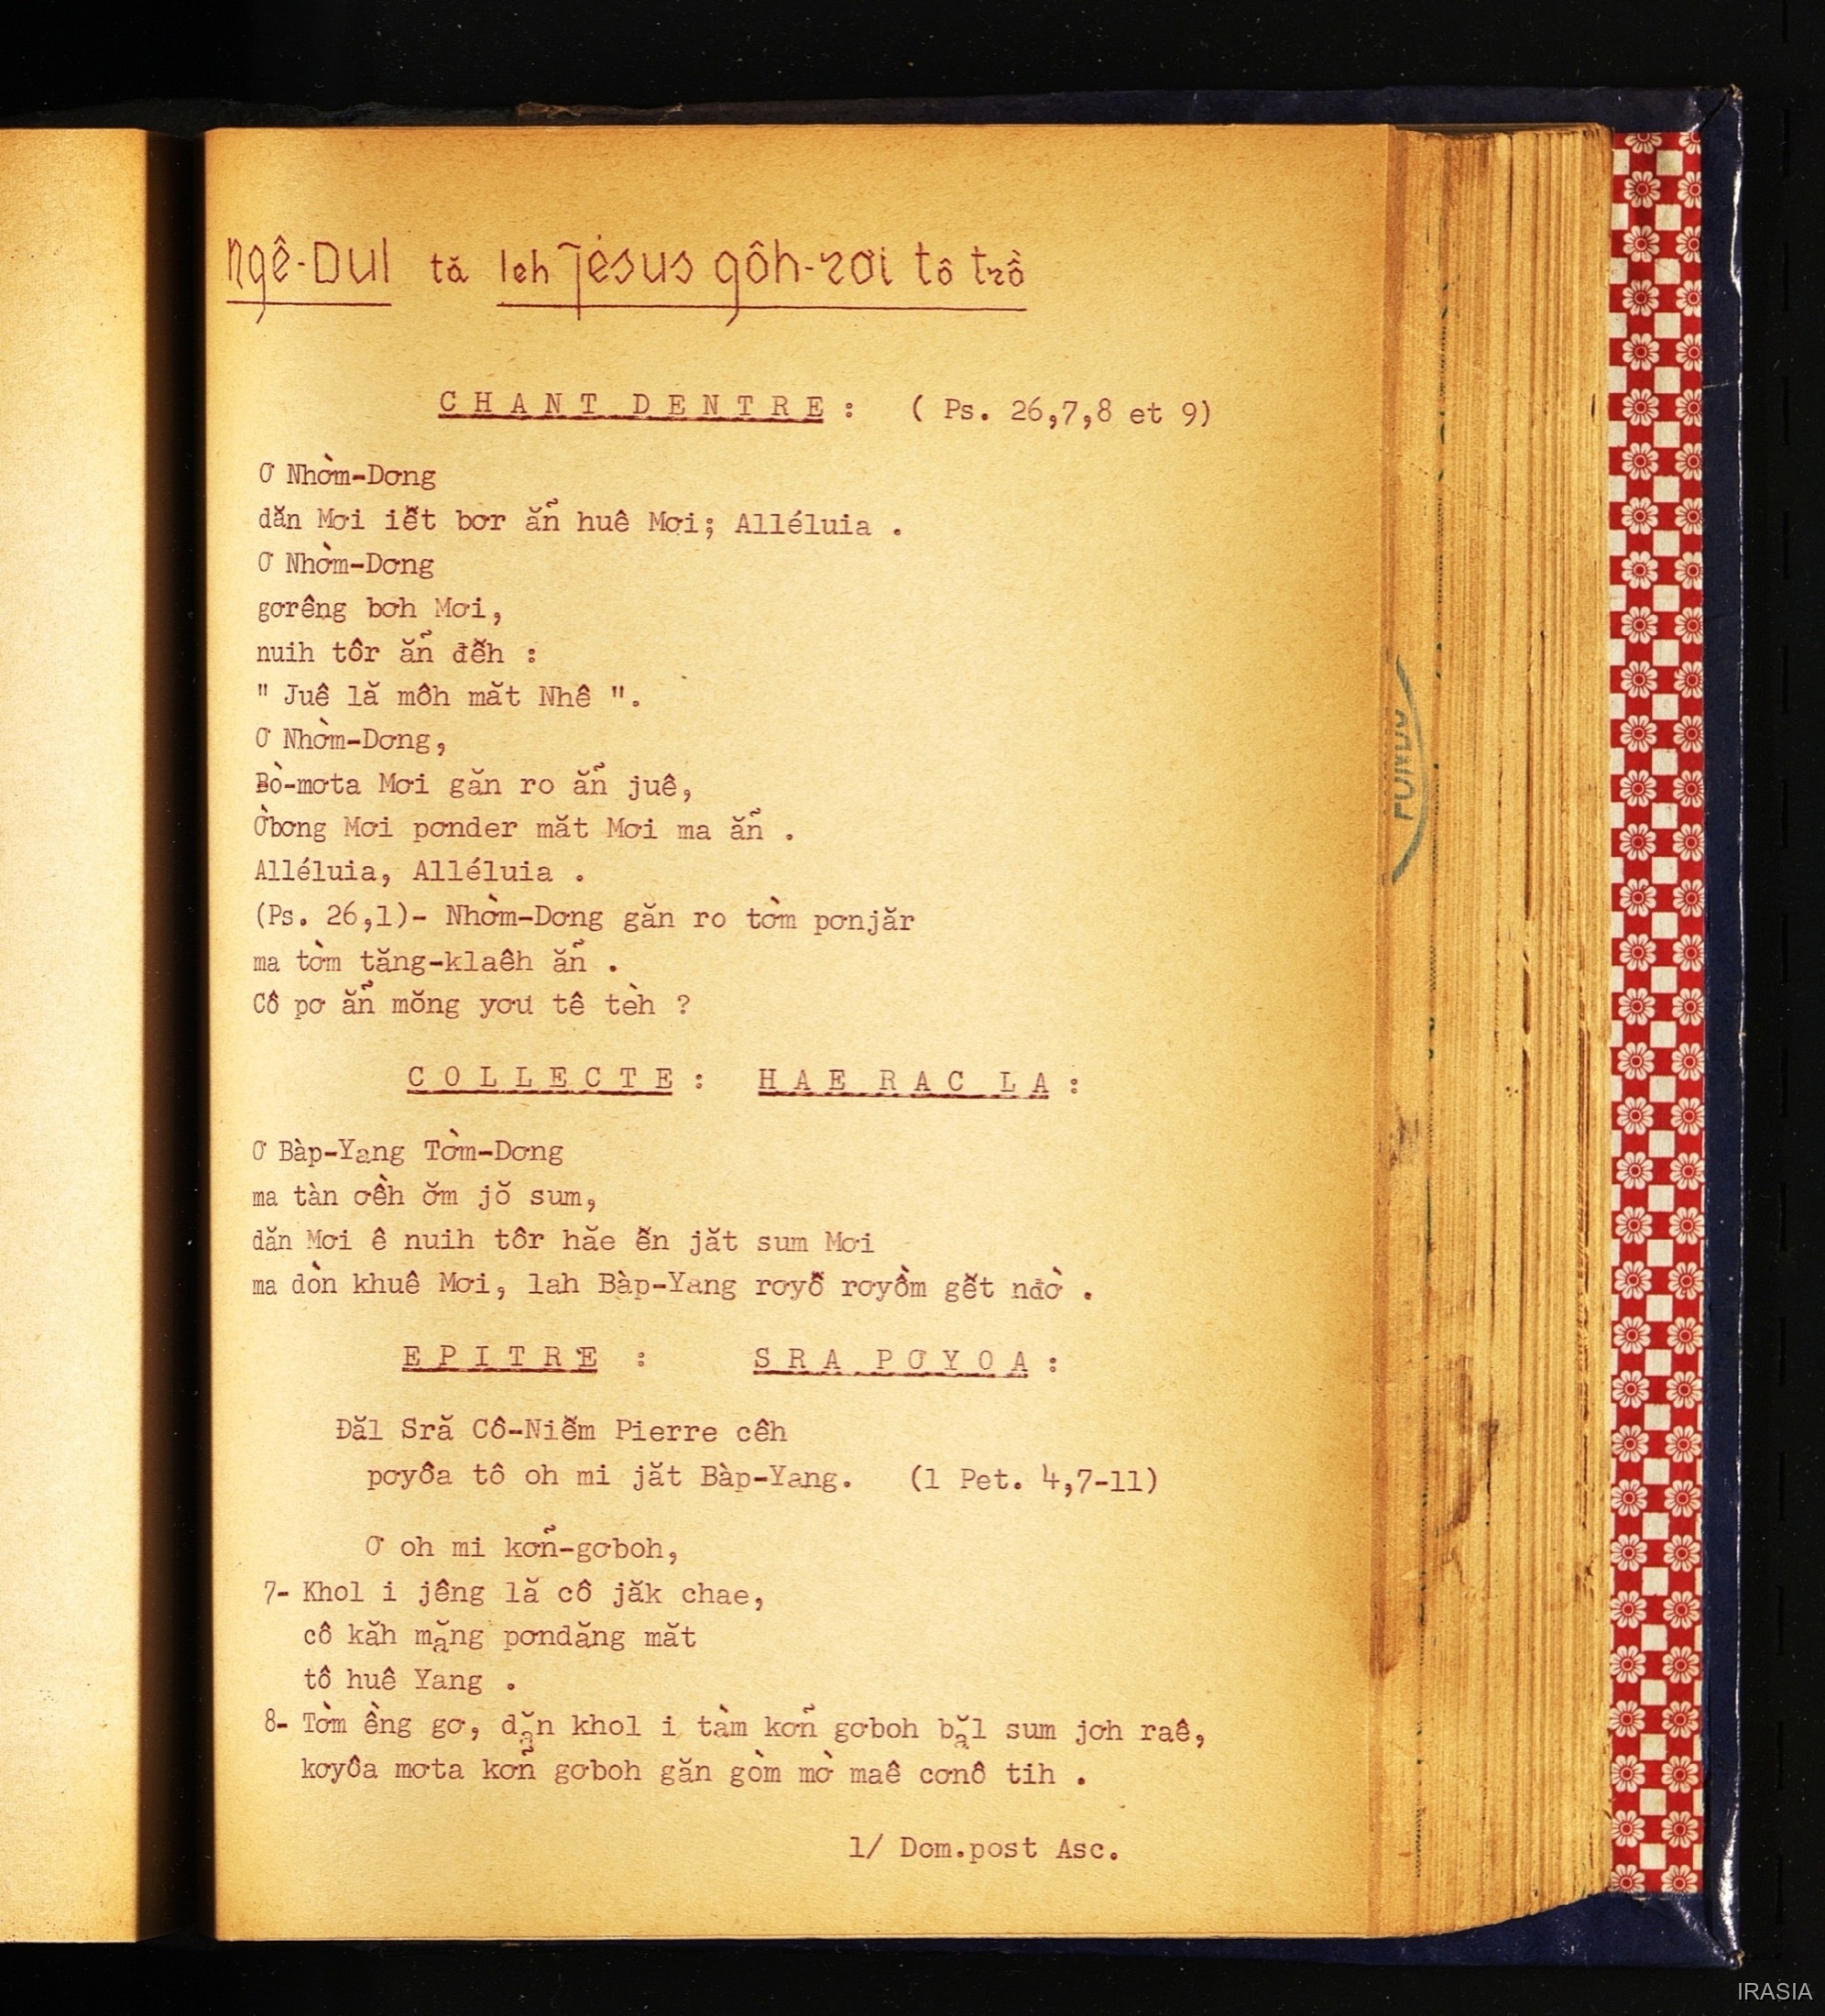 Ngê-Dul tă leh Jésus gôh-rơi tô trồ
CHANT DENTRE : ( Ps. 26,7,8 et 9)
Ơ Nhờm-Dơng
dăn Mơi iết bơr ăn̉ huê Mơi; Alléluia .
Ơ Nhờm-Dơng
gơrêng bơh Mơi,
nuih tôr ăn̉ đễh :
" Juê lă môh măt Nhê ".
Ơ Nhờm-Dơng,
Bò-mơta Mơi găn ro ăn̉ juê,
Ờbơng Mơi pơnder măt Mơi ma ăn̉ .
Alléluia, Alléluia .
(Ps. 26,1)- Nhờm-Dơng găn ro tờm pơnjăr
ma tờm tăng-klaêh ăn̉ .
Cô pơ ăn̉ mŏng yơu tê tèh ?
COLLECTE : HAE RAC LA :
Ơ Bàp-Yang Tờm-Dơng
ma tàn ơềh ơ̆m jŏ sum,
dăn Mơi ê nuih tôr hăe ễn jăt sum Mơi
ma dòn khuê Mơi, lah Bàp-Yang rơyỗ rơyồm gễt nđờ .
EPITRE : SRA PƠYOA :
Đăl Sră Cô-Niễm Pierre cêh
pơyôa tô oh mi jăt Bàp-Yang. (1 Pet. 4,7-11)
Ơ oh mi kơn̉-gơboh,
7- Khol i jêng lă cô jăk chae,
cô kăh mặng pơndăng măt
tô huê Yang .
8- Tờm ềng gơ, dặn khol i tàm kơn̉ gơboh bặl sum jơh raê,
kơyôa mơta kơn̉ gơboh găn gòm mờ maê cơnô tih .
1/ Dom.post Asc.
FONDS
IRASIA